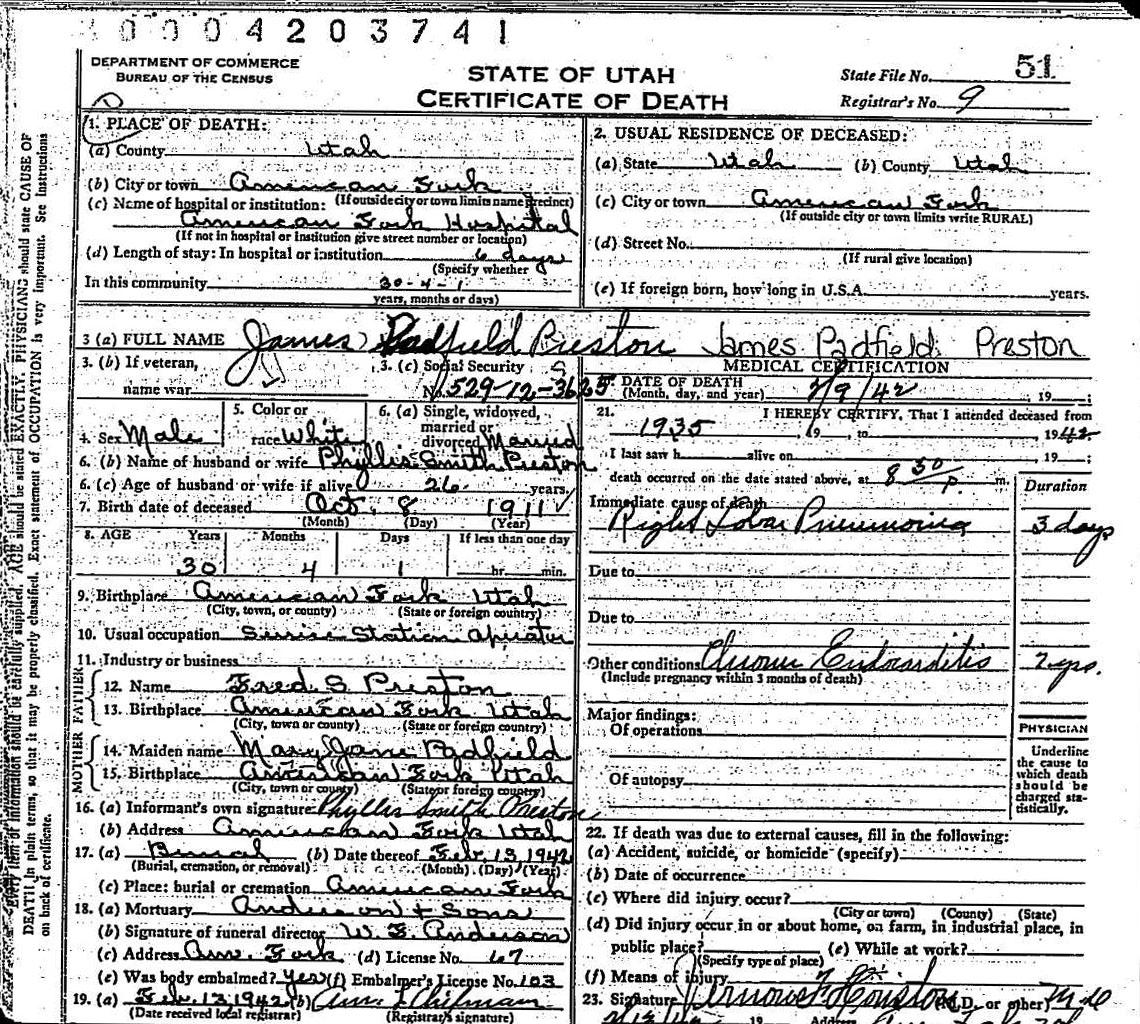 0004203741
DEPARTMENT OF COMMERCE
BUREAU OF THE CENSUS
STATE OF UTAH
CERTIFICATE OF DEATH
State File No. 51
Registrar's No. 9
1. PLACE OF DEATH:
(a) County Utah
(b) City or town American Fork
(If outside city or town limits name precinct)
(c) Name of hospital or institution:
American Fork Hospital
(If not in hospital or institution give street number or location)
(d) Length of stay: In hospital or institution 6 days
(Specify whether
In this community 30-4-1
years, months or days)
2. USUAL RESIDENCE OF DECEASED:
(a) State Utah (b) County Utah
(c) City or town American Fork
(If outside city or town limits write RURAL)
(d) Street No.
(If rural give location)
(e) If foreign born, how long in U.S.A. years.
3 (a) FULL NAME James Padfield Preston James Padfield Preston
3. (b) If veteran,
name war
3. (c) Social Security
No. 529-12-3625
4. Sex Male
5. Color or
race White
6. (a) Single, widowed,
married or
divorced Married
6. (b) Name of husband or wife Phyllis Smith Preston
6. (c) Age of husband or wife if alive 26 years.
7. Birth date of deceased Oct. 8 1911
(Month) (Day) (Year)
8. AGE Years Months Days If less than one day
30 4 1 hr. min.
9. Birthplace American Fork Utah
(City, town, or county) (State or foreign country)
10. Usual occupation Service Station Operator
11. Industry or business
FATHER
12. Name Fred S Preston
13. Birthplace American Fork Utah
(City, town or county) (State or foreign country)
MOTHER
14. Maiden name Mary Jane Padfield
15. Birthplace American Fork Utah
(City, town or county) (State or foreign country)
16. (a) Informant's own signature Phyllis Smith Preston
(b) Address American Fork Utah
17. (a) Burial (b) Date thereof Feb. 13 1942
(Burial, cremation, or removal) (Month) (Day) (Year)
(c) Place: burial or cremation American Fork
18. (a) Mortuary Anderson & Sons
(b) Signature of funeral director W. E. Anderson
(c) Address Am. Fork (d) License No. 67
(e) Was body embalmed? Yes (f) Embalmer's License No. 103
19. (a) Feb. 13 1942 (b)
(Date received local registrar) (Registrar's signature)
MEDICAL CERTIFICATION
DATE OF DEATH
(Month, day, and year) 2/9/42, 19
21. I HEREBY CERTIFY, That I attended deceased from
1935, 19, to 1942
I last saw h alive on, 19;
death occurred on the date stated above, at 8 30/P. m.
Duration
Immediate cause of death
Right Lobar Pneumonia 3 days
Due to
Due to
Other conditions Chronic Endocarditis 7 yrs.
(Include pregnancy within 3 months of death)
Major findings:
Of operations
Of autopsy
PHYSICIAN
Underline
the cause to
which death
should be
charged sta-
tistically.
22. If death was due to external causes, fill in the following:
(a) Accident, suicide, or homicide (specify)
(b) Date of occurrence
(c) Where did injury occur?
(City or town) (County) (State)
(d) Did injury occur in or about home, on farm, in industrial place, in
public place? (e) While at work?
(Specify type of place)
(f) Means of injury
23. Signature Vernow F. Houston (M.D. or other) M.D.
19 Address
Every item of information should be carefully supplied. AGE should be stated EXACTLY. PHYSICIANS should state CAUSE OF
DEATH in plain terms, so that it may be properly classified. Exact statement of OCCUPATION is very important. See Instructions
on back of certificate.